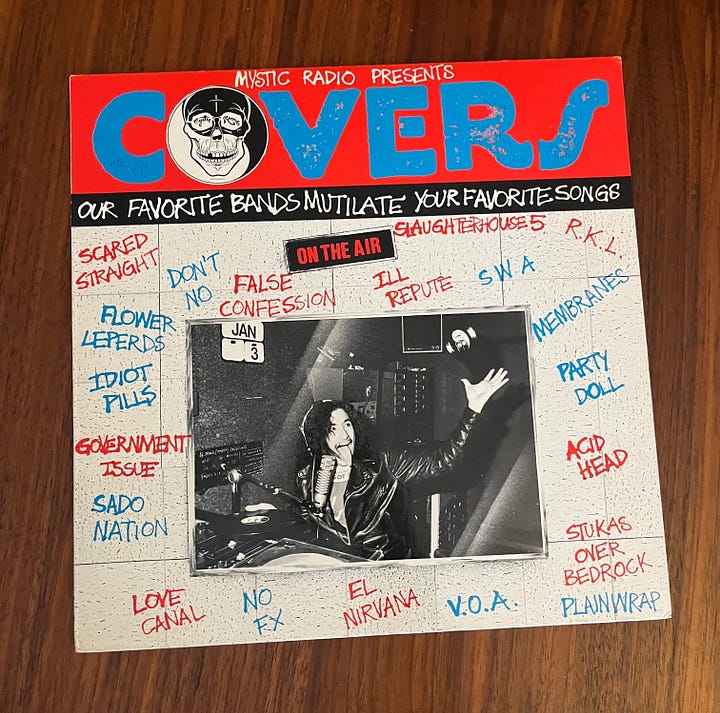 MYSTIC RADIO PRESENTS
COVERS
OUR FAVORITE BANDS MUTILATE YOUR FAVORITE SONGS
ON THE AIR
SLAUGHTERHOUSE 5
R.K.L.
SCARED
STRAIGHT
DON'T
NO
FALSE
CONFESSION
ILL
REPUTE
SWA
MEMBRANES
FLOWER
LEPERDS
JAN
3
IDIOT
PILLS
PARTY
DOLL
GOVERNMENT
ISSUE
ACID
HEAD
SADO
NATION
STUKAS
OVER
BEDROCK
LOVE
CANAL
NO
FX
EL
NIRVANA
V.O.A.
PLAINWRAP